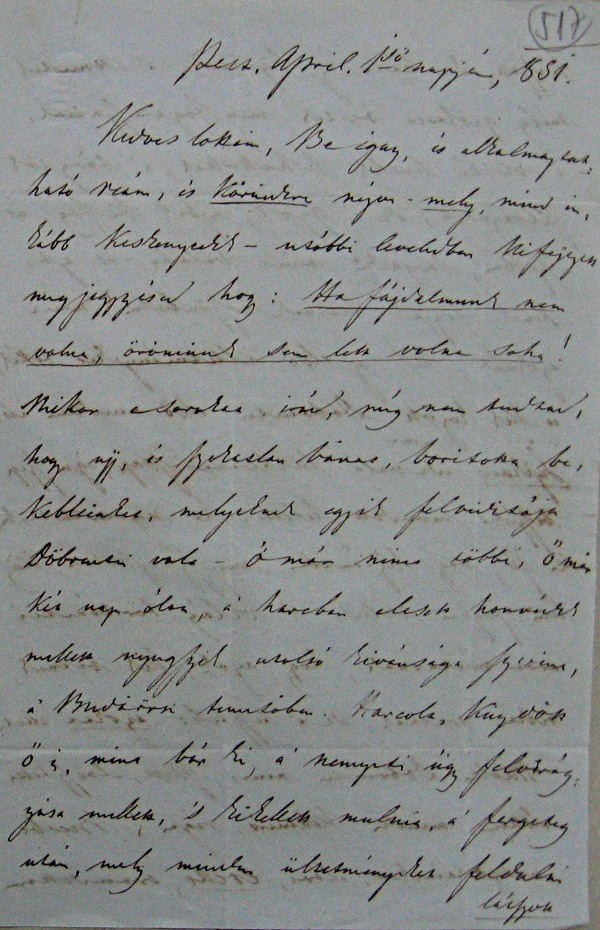 517
Pest. April. 1ső napján, 851.
Kedves lokám, Be igaz, és alkalmaztat,
ható reám, és Körünkre nézve - mely, mind in,
kább Keskenyedik - utóbbi leveledben kifejezett
megjegyzésed hogy: Ha fájdalmunk nem
volna, örömünk sem lett volna soha!
Mikor e sorokat irád, még nem tudtad,
hogy ujj, és szokatlan bánat, boritotta be,
Kebleinket, melyeknek egyik felviditója
Döbrentei vala - Ő már nincs többé, Ő már
Két nap ólta, á harcban elesett honvédek
mellett nyugszik utolsó kivánsága szerint,
á Budaörsi temetőben. Harcolt, Küzdött
Ő is, mint bár ki, á nemzeti ügy felvirág,
zása mellett, 's ki kellett mulnia, á fergeteg
után, mely minden ültetményeket feldulni
látszott